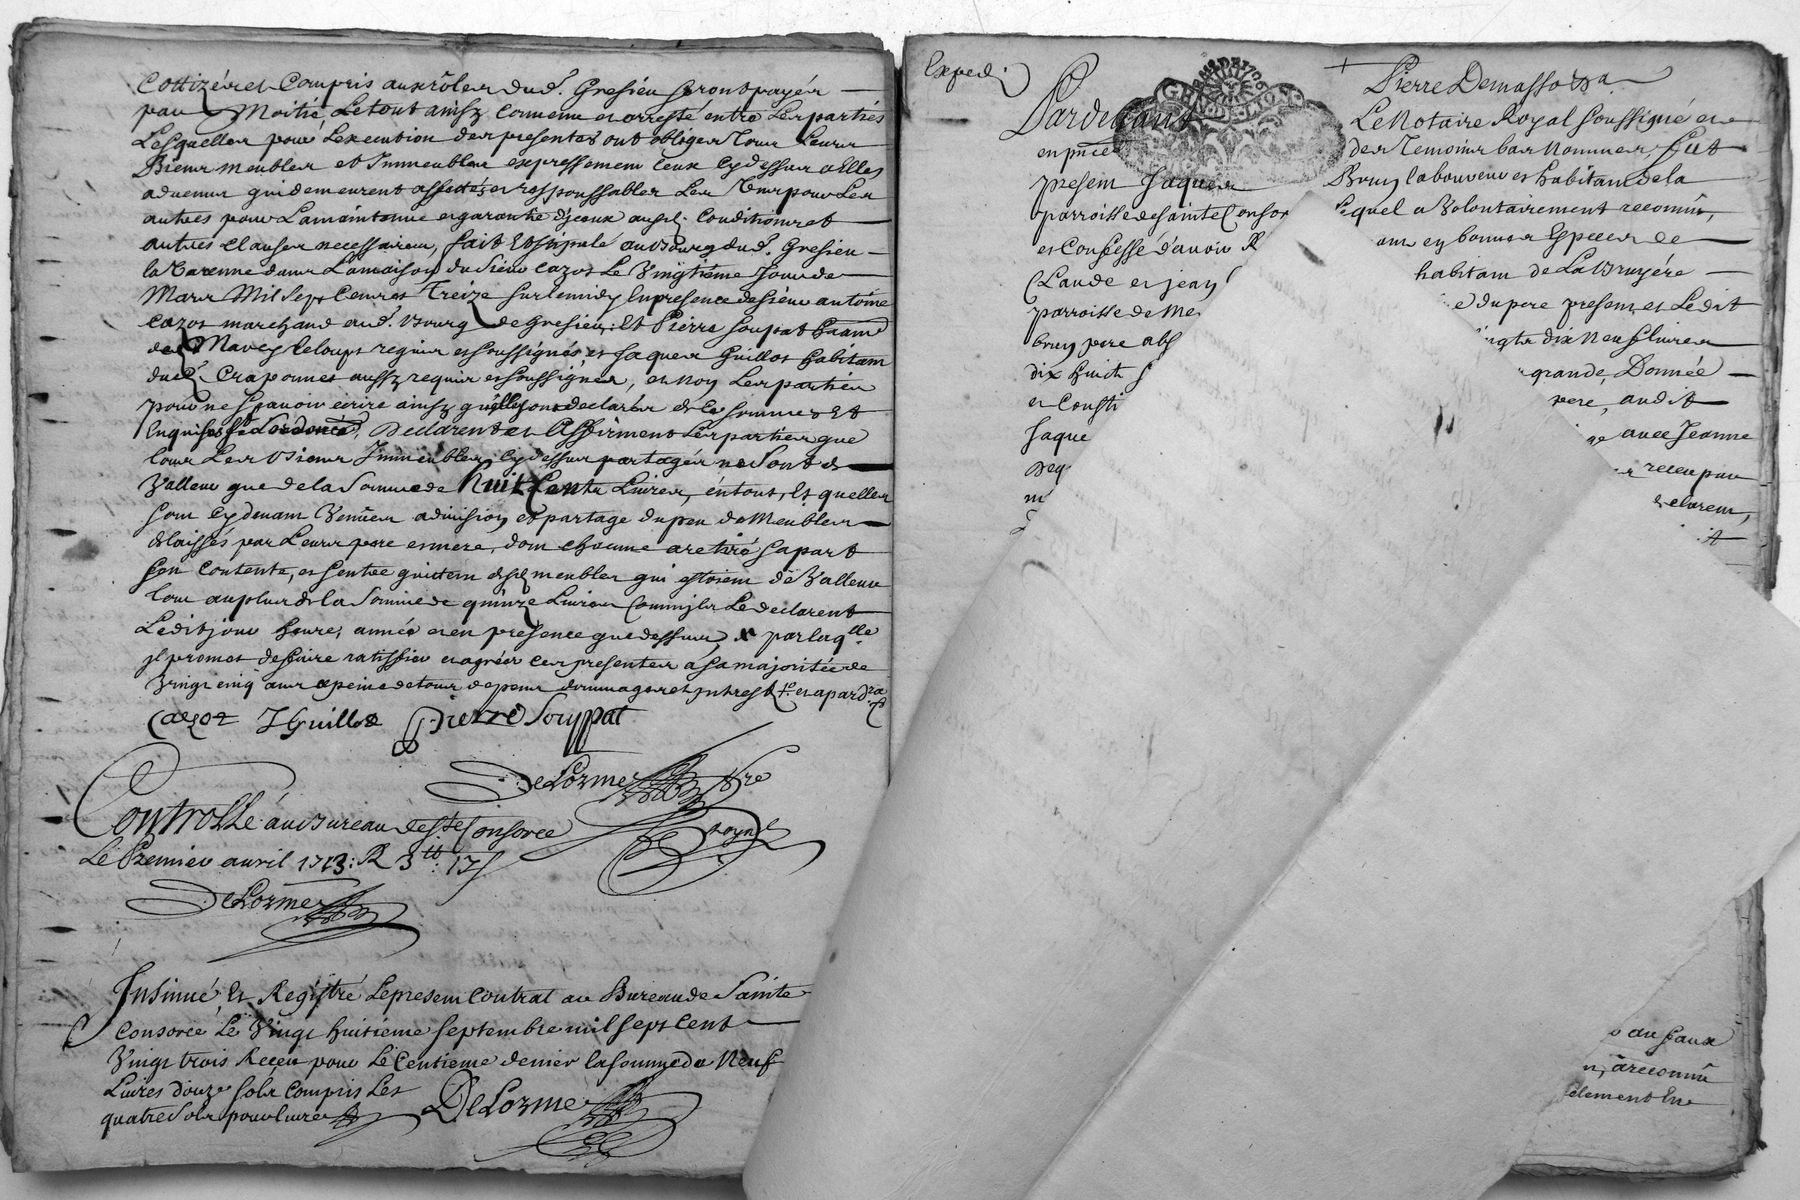 Cottizér et Compris aux rôler dud. Gresieu seront payér
par Moitié Le tout ainsy convenu et arresté entre Les partiés
Lesqueller pour L'execution des presentes ont obliger Tour Leurs
Bienr meubler et Immeubler expressement Ceux Cydessur
advenir qui demeurent affectés et responssabler Les uns pour Les
autres pour La maintenue et garantie d'jceux aux d. Conditions et
autres clauser necessairer, fait et stipulé au Bourg dud. Gresieu
la Varenne dans La maison du Sieur Cazot Le Vingtième Jour de
Marr Mil Sept Cents et Treize sur le midy En presence de sieur antoine
Cazot marchand aud. Bourg de Gresieu: Et Pierre Soupat
requir et soussignés, et Jaquer Guillot habitam
dud. Craponnes aussy requir et soussigner, et non Les partier
pour ne sçavoir ecrire ainsy qu'eller ont declarér de ce sommer Et
Enquiser Declarent et Affirment Les partier que
tour Les Bienr Immeubler Cydessur partagér ne sont de
Valleur que de la Somme de Huit Cents Livres, en tout, Et
sont Cydevant Venuer a division et partage du peu de Meubler
delaissés par Leurs pere et mere, dont chacune a retiré sa part
s'en Contente, et s'entre quittent meubler qui estoient de Valleur
tour au plus de la Somme de quinze Livres Comm'jls Le declarent
Ledit jour heure, année et en presence que dessur, par laqlle
jl promet de faire ratiffier et agréer Les presenter a sa majoritée de
Vingt cinq anr a peine de tour depenr dommages et Interest
Cazot J Guillot Pierre Souppat
DeLorme Nre
Royal
Controllé au Bureau de Ste Consorce
Le Premier avril 1713: R 3 tt: 17 s
DeLorme
Insinué Et Registré Le present Contrat au Bureau de Sainte
Consorce Le Vingt huitieme septembre mil sept cent
Vingt trois Receu pour Le Centieme denier la somme de Neuf
Livres douze sols compris Les
quatre sols pour livre DeLorme
Exped.
Pierre Demasso
GEN DE LION
Pardevant Le Notaire Royal soussigné et
en pnce der Temoins bas Nommer, fut
present Jaquer Brun laboureur et habitam de la
parroisse de Sainte Consor lequel a Volontairement reconnu,
et Confessé d'avoir R en bonner Especer de
Claude et jean habitam de La Bruyére
parroisse de Me du pere present et Ledit
brun pere abs ingts dix Neuf livres
dix huict grande, Donnée
et Consti pere, audit
Jaque avec Jeanne
receu par
declarent,
au faux
a reconnu
element En